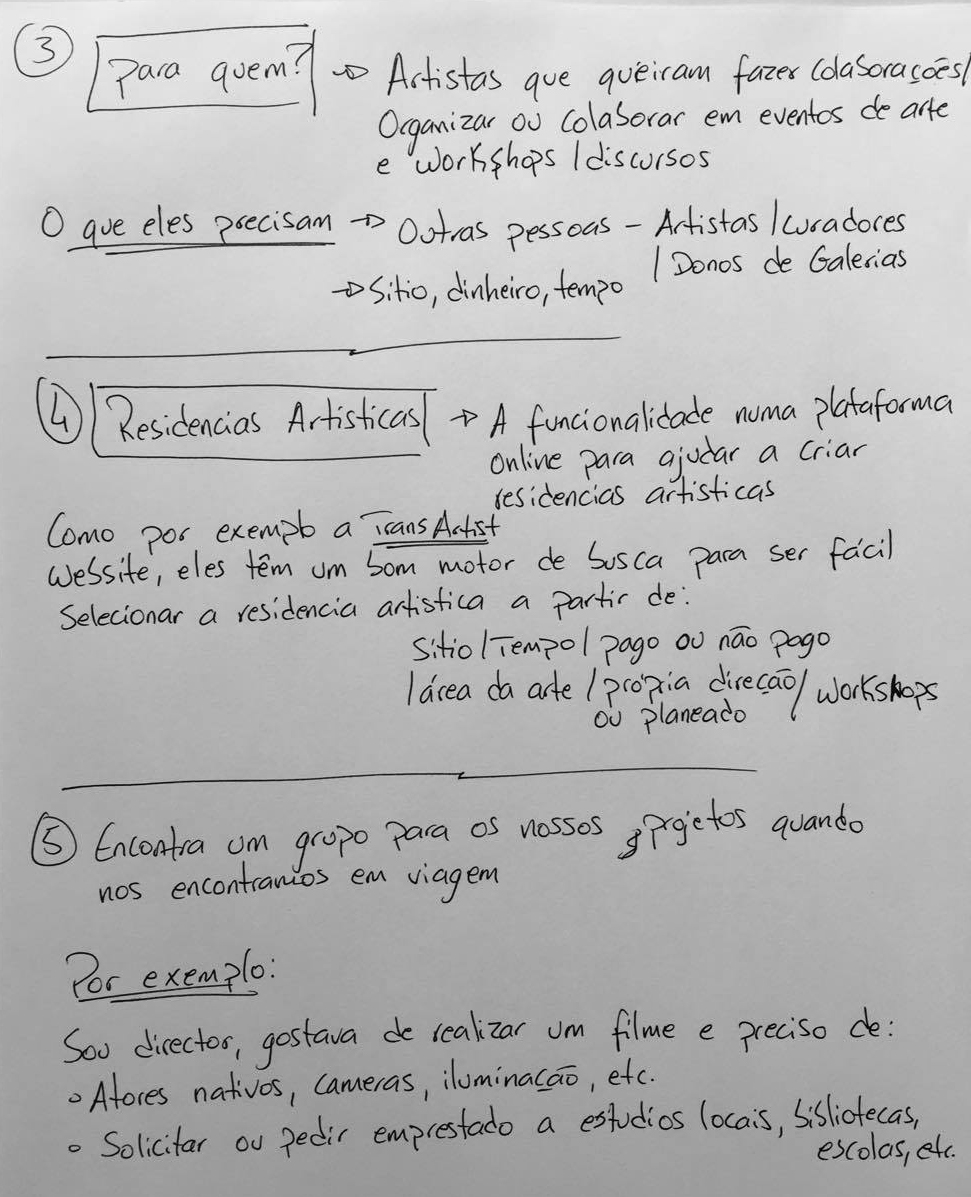 ③ Para quem? → Artistas que queiram fazer colaborações/
Organizar ou colaborar em eventos de arte
e workshops / discursos
O que eles precisam → Outras pessoas - Artistas / curadores
/ Donos de Galerias
→ Sitio, dinheiro, tempo
④ Residencias Artisticas → A funcionalidade numa plataforma
online para ajudar a criar
residencias artisticas
Como por exemplo a TransArtist
website, eles têm um bom motor de busca para ser fácil
Selecionar a residencia artistica a partir de:
Sitio / Tempo / pago ou não pago
/ área da arte / própria direcção / workshops
ou planeado
⑤ Encontra um grupo para os nossos projetos quando
nos encontramos em viagem
Por exemplo:
Sou director, gostava de realizar um filme e preciso de:
◦ Atores nativos, cameras, iluminação, etc.
◦ Solicitar ou pedir emprestado a estudios locais, bibliotecas,
escolas, etc.